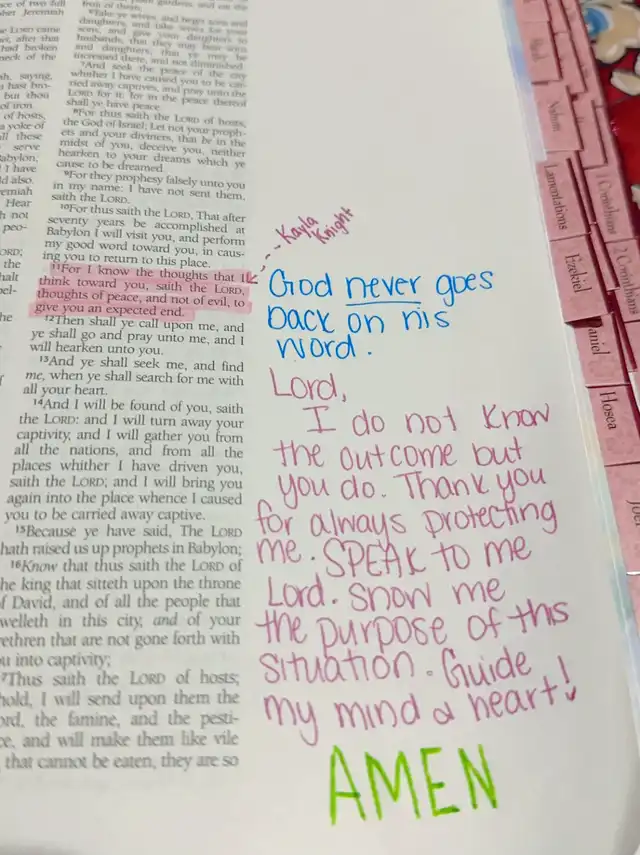 ce of two full
her Jeremiah
e LORD came
er, after that
had broken
neck of the
h, saying,
but thou
of iron
of hosts,
a yoke of
ll these
serve
abylon;
I have
ld also.
remiah
Hear
h not
peo-
ORD;
the
halt
bel-
he
f
daughters, and take wives for your
sons, and give your daughters to
husbands, that they may bear sons
and daughters; that ye may be
increased there, and not diminished.
7And seek the peace of the city
whither I have caused you to be car-
ried away captives, and pray unto the
LORD for it: for in the peace thereof
shall ye have peace.
8For thus saith the LORD of hosts,
the God of Israel; Let not your proph-
ets and your diviners, that be in the
midst of you, deceive you, neither
hearken to your dreams which ye
cause to be dreamed.
9For they prophesy falsely unto you
in my name: I have not sent them,
saith the LORD.
10For thus saith the LORD, That after
seventy years be accomplished at
Babylon I will visit you, and perform
my good word toward you, in caus-
ing you to return to this place.
11For I know the thoughts that I
think toward you, saith the LORD,
thoughts of peace, and not of evil, to
give you an expected end.
12Then shall ye call upon me, and
ye shall go and pray unto me, and I
will hearken unto you.
13And ye shall seek me, and find
me, when ye shall search for me with
all your heart.
14And I will be found of you, saith
the LORD: and I will turn away your
captivity, and I will gather you from
all the nations, and from all the
places whither I have driven you,
saith the LORD; and I will bring you
again into the place whence I caused
you to be carried away captive.
15Because ye have said, The LORD
hath raised us up prophets in Babylon;
16Know that thus saith the LORD of
he king that sitteth upon the throne
f David, and of all the people that
welleth in this city, and of your
rethren that are not gone forth with
u into captivity;
7Thus saith the LORD of hosts;
hold, I will send upon them the
ord, the famine, and the pesti-
ce, and will make them like vile
that cannot be eaten, they are so
Kayla
Knight
God never goes
back on his
word.
Lord,
I do not know
the outcome but
you do. Thank you
for always protecting
me. SPEAK to me
Lord. Show me
the purpose of this
situation. Guide
my mind & heart!
AMEN
Nahum
Lamentations
Ezekiel
aniel
Hosea
Joel
1 Corinthians
2 Corinthians